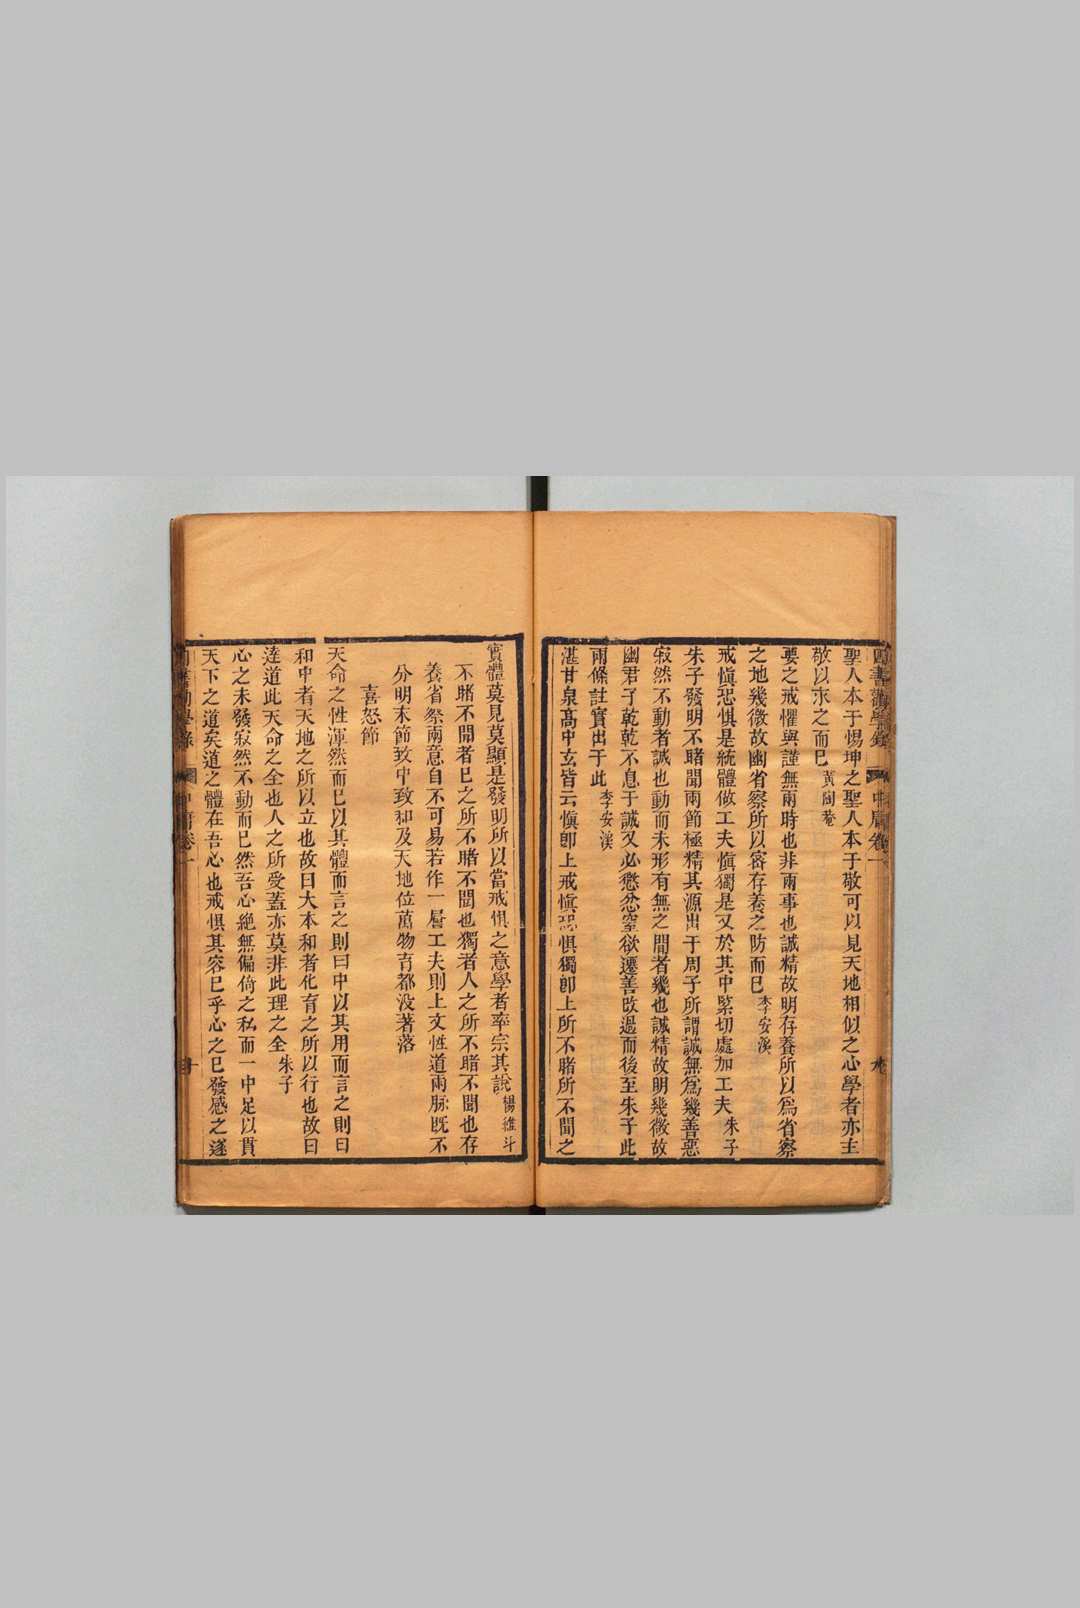 聖人本于惕坤之聖人本于敬可以見天地相似之心學者亦主
敬以求之而已 黃陶菴
要之戒懼與謹無兩時也非兩事也誠精故明存養所以爲省察
之地幾微故幽省察所以密存養之防而已 李安溪
戒愼恐惧是統體做工夫愼獨是又於其中緊切處加工夫 朱子
朱子發明不睹聞兩節極精其源出于周子所謂誠無爲幾善惡
寂然不動者誠也動而未形有無之間者幾也誠精故明幾微故
幽君子乾乾不息于誠又必懲忿窒欲遷善改過而後至朱子此
兩條註實出于此 李安溪
湛甘泉高中玄皆云愼卽上戒愼恐惧獨卽上所不睹所不聞之
實體莫見莫顯是發明所以當戒惧之意學者率宗其說 楊維斗
不睹不聞者已之所不睹不聞也獨者人之所不睹不聞也存
養省察兩意自不可易若作一層工夫則上文性道兩脉旣不
分明末節致中致和及天地位萬物育都没著落
喜怒節
天命之性渾然而已以其體而言之則曰中以其用而言之則曰
和中者天地之所以立也故曰大本和者化育之所以行也故曰
達道此天命之全也人之所受蓋亦莫非此理之全 朱子
心之未發寂然不動而已然吾心絶無偏倚之私而一中足以貫
天下之道矣道之體在吾心也戒惧其容已乎心之已發感之遂
中庸卷一